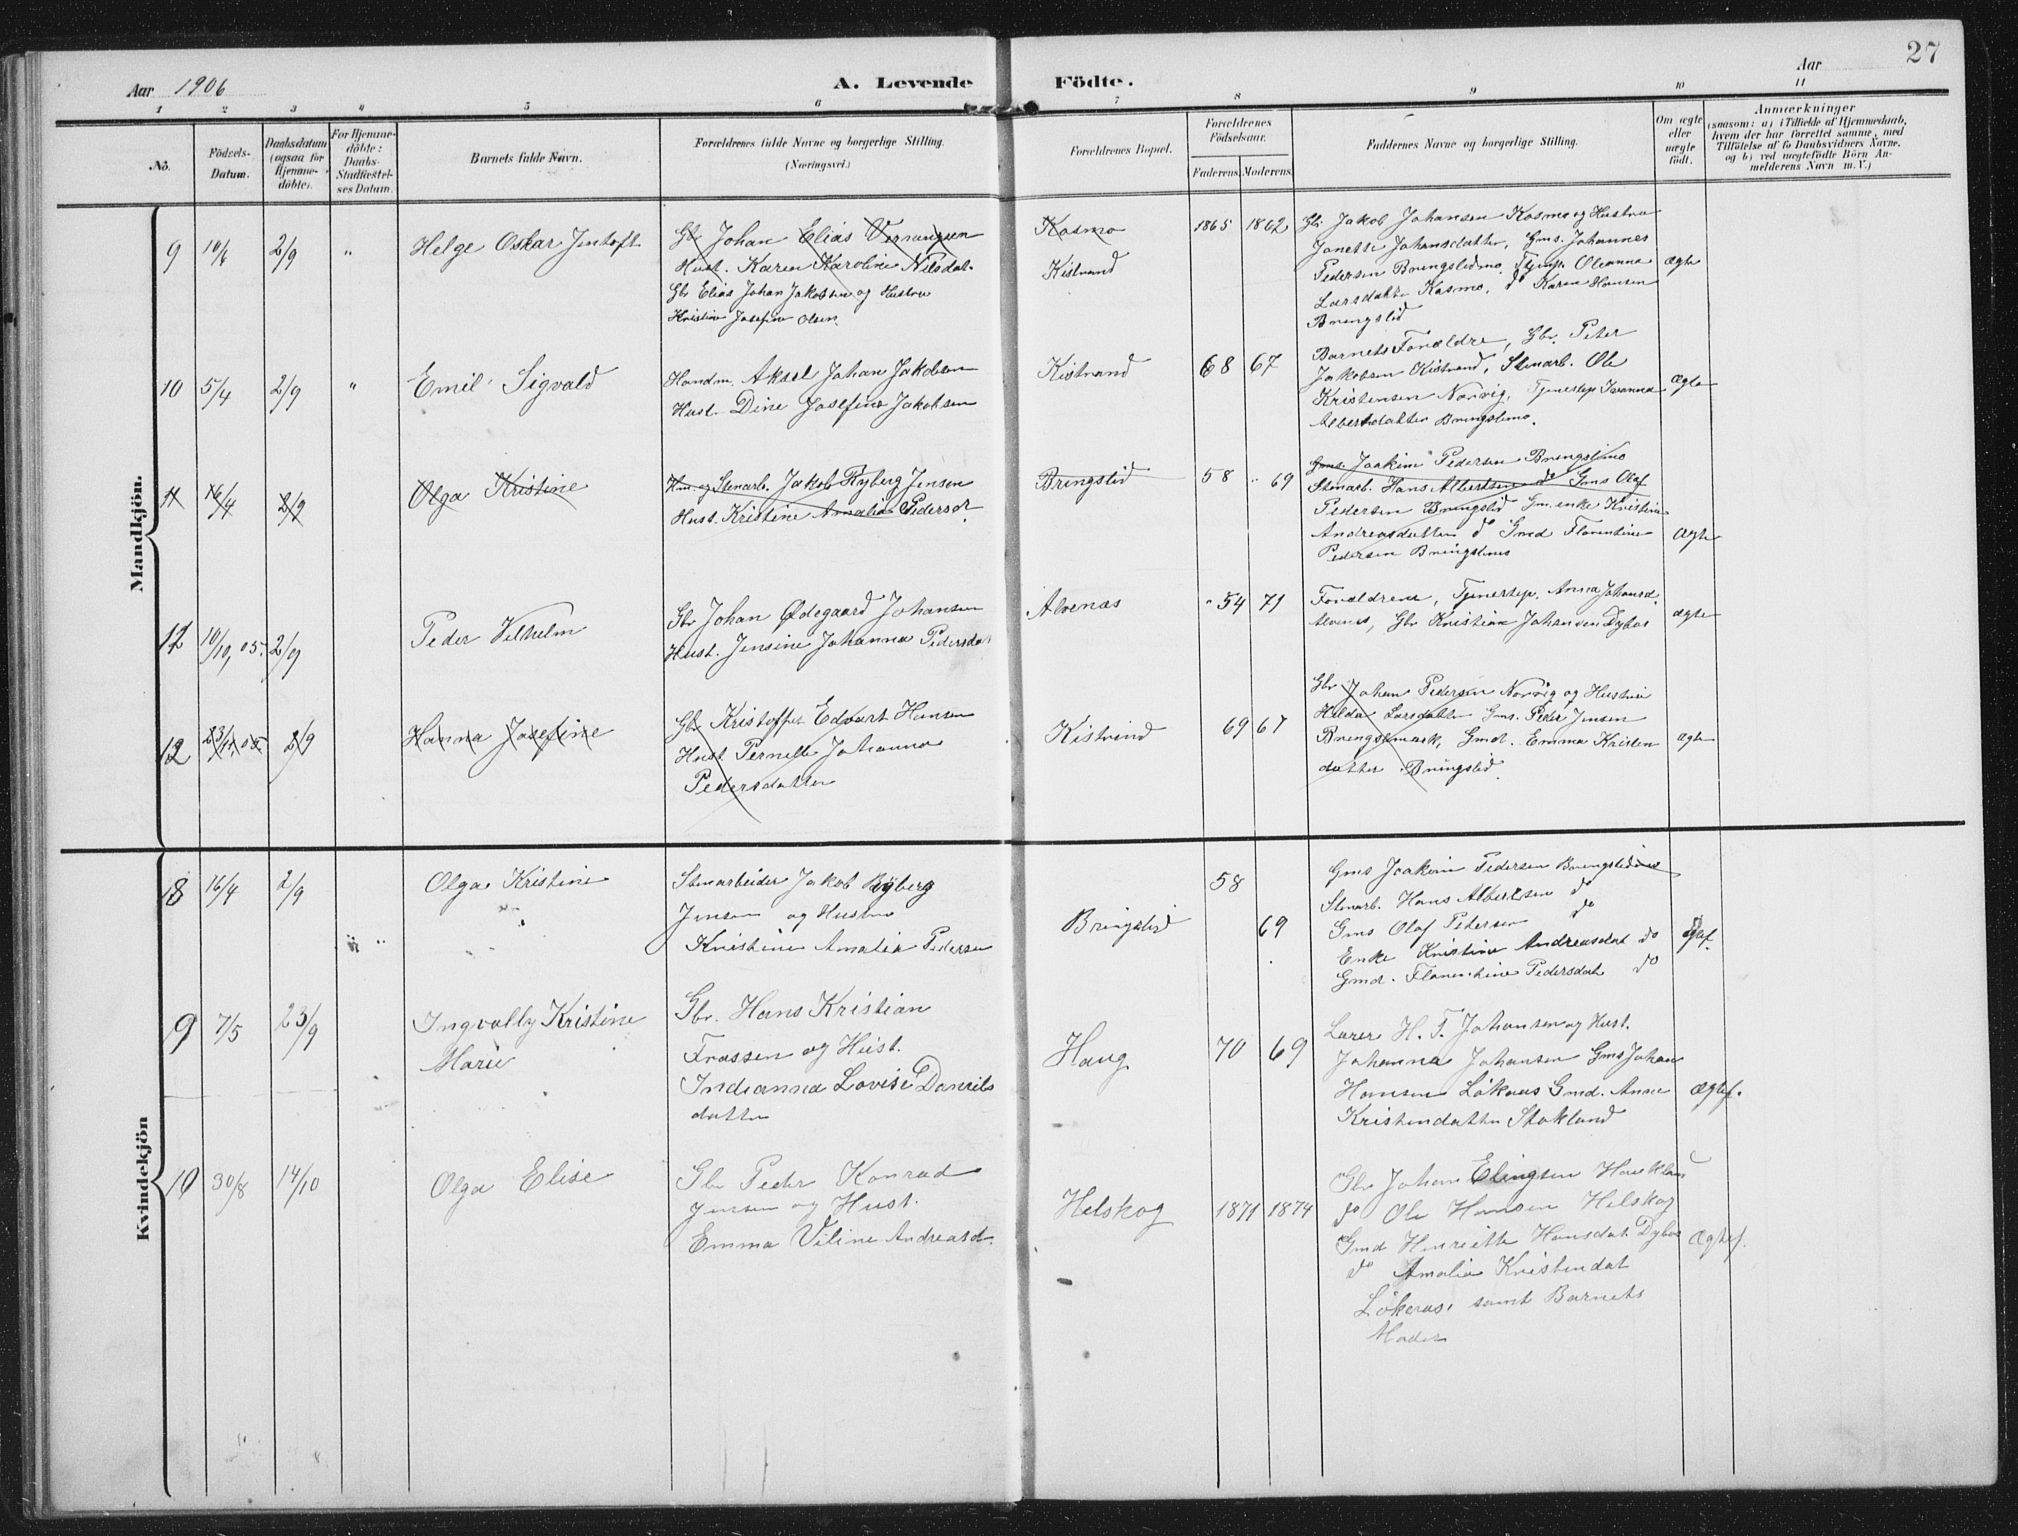 27
Aar 1906
A. Levende Födte.
Aar
1 2 3 4 5 6 7 8 9 10 11
No.
Födsels-Datum.
Daabsdatum (ogsaa for Hjemme-döbte).
For Hjemme-döbte: Daabs-Stadfæstel-ses Datum.
Barnets fulde Navn.
Forældrenes fulde Navne og borgerlige Stilling.
(Næringsvei.)
Forældrenes Bopæl.
Forældrenes Födselsaar.
Faderens. Moderens.
Faddernes Navne og borgerlige Stilling.
Om ægte eller uægte födt.
Anmærkninger
(saasom: a) i Tilfælde af Hjemmedaab, hvem der har forrettet samme, med Tilföielse af to Daabsvidners Navne, og b) ved uægtefödte Börn An-melderens Navn m. V.)
Mandkjön.
9 10/6 2/9 " Helge Oskar Jentoft
Gbr Johan Elias
Hust. Karen Karoline Nilsdat.
Gbr Elias Johan Jakobsen og Hustru
Kristine Josefine Olsen.
Kosmo
Kistrand
1865 1862
Gbr Jakob Johansen Kosmo og Hustru
Janette Johansdatter, Gms. Johannes
Pedersen Bringslidmo, Tjenp. Oleanna
Larsdatter Kosmo, do Karen Hansen
Bringslid
ægte
10 5/4 2/9 " Emil Sigvald
Handm. Aksel Johan Jakobsen
Hust. Dine Josefine Jakobsen
Kistrand
68 67
Barnets Forældre, Gbr. Peter
Jakobsen Kistrand, Stenarb. Ole
Kristensen Norvig, Tjenestep
Albertsdatter Bringslimo.
ægte
11 16/4 2/9 Olga Kristine
Hm. og Stenarb. Jakob Ryberg Jensen
Hust. Kristine Amalia Pedersd.
Bringslid
58 " 69
Gms. Joakim Pedersen Bringslimo
Stenarb. Hans Albertsen do Gms Olaf
Pedersen Bringslid Gm. enke Kristine
Andreasdatter do Gmd Florentine
Pedersen
ægte
12 10/10, 05. 2/9 Peder Vilhelm
Gbr Johan Ødegaard Johansen
Hust. Jensine Johanna Pedersdat
Alvenæs
" 54 71
Forældrene, Tjenestep. Anna Johansd.
Alvenes, Gbr Kristian Johansen Dybos
ægte
12 23/11, 05 2/9 Hanna Josefine
Gbr Kristoffer Edvart Hansen
Hust Pernelle Johanna
Pedersdatter
Kistrind
69 67
Gbr Johan Pedersen Norvig og Hustru
Hilda Larsdatter Gms. Peder Jensen
Bringslimark, Gmd. Emma Kristen
datter Bringslid
ægte
Kvindekjön
18 16/4 2/9 " " Olga Kristine
Stenarbeider Jakob Ryberg
Jensen og Hustru
Kristine Amalia Pedersen
Bringslid
58
69
Gms Joakim Pedersen
Stenarb. Hans Albertsen do
Gms Olaf Pedersen do
Enke Kristine Andreasdat do
Gmd. Florentine Pedersdat do
Ægtef.
9 7/5 23/9 Ingvally Kristine
Marie
Gbr. Hans Kristian
Frassen og Hust.
Indianna Lovise Daniels
datter
Haug
70 69
Lærer H. T. Johansen og Hust.
Johanna Johansen Gms Johan
Hansen Løkaas Gmd. Anna
Kristendatter Stokland
Ægtef.
10 30/8 14/10 Olga Elise
Gbr Peder Konrad
Jensen og Hust.
Emma Viline Andreasd.
Helskog
1871 1874
Gbr Johan Elingsen
do Ole Hansen Helskog
Gmd Henriette Hansdat. Dybos
do Amalia Kristendat
Løkeraas, samt Barnets
Moder
Ægtef.